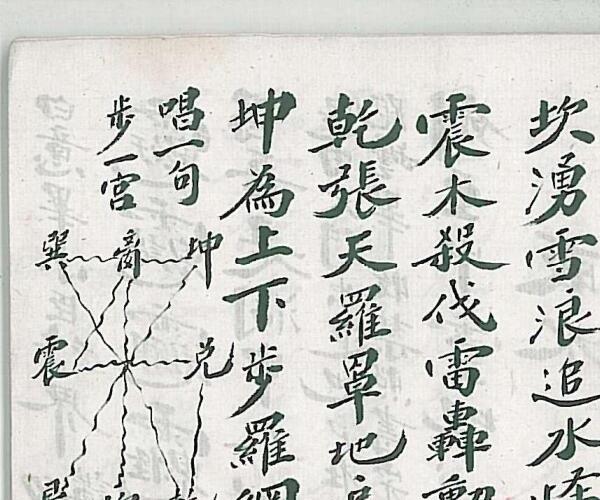 坎湧雪浪追水
震木殺伐雷轟
乾張天羅罩地
坤為上下步羅網
唱一句
步一宮
巽 离 坤
震 兌